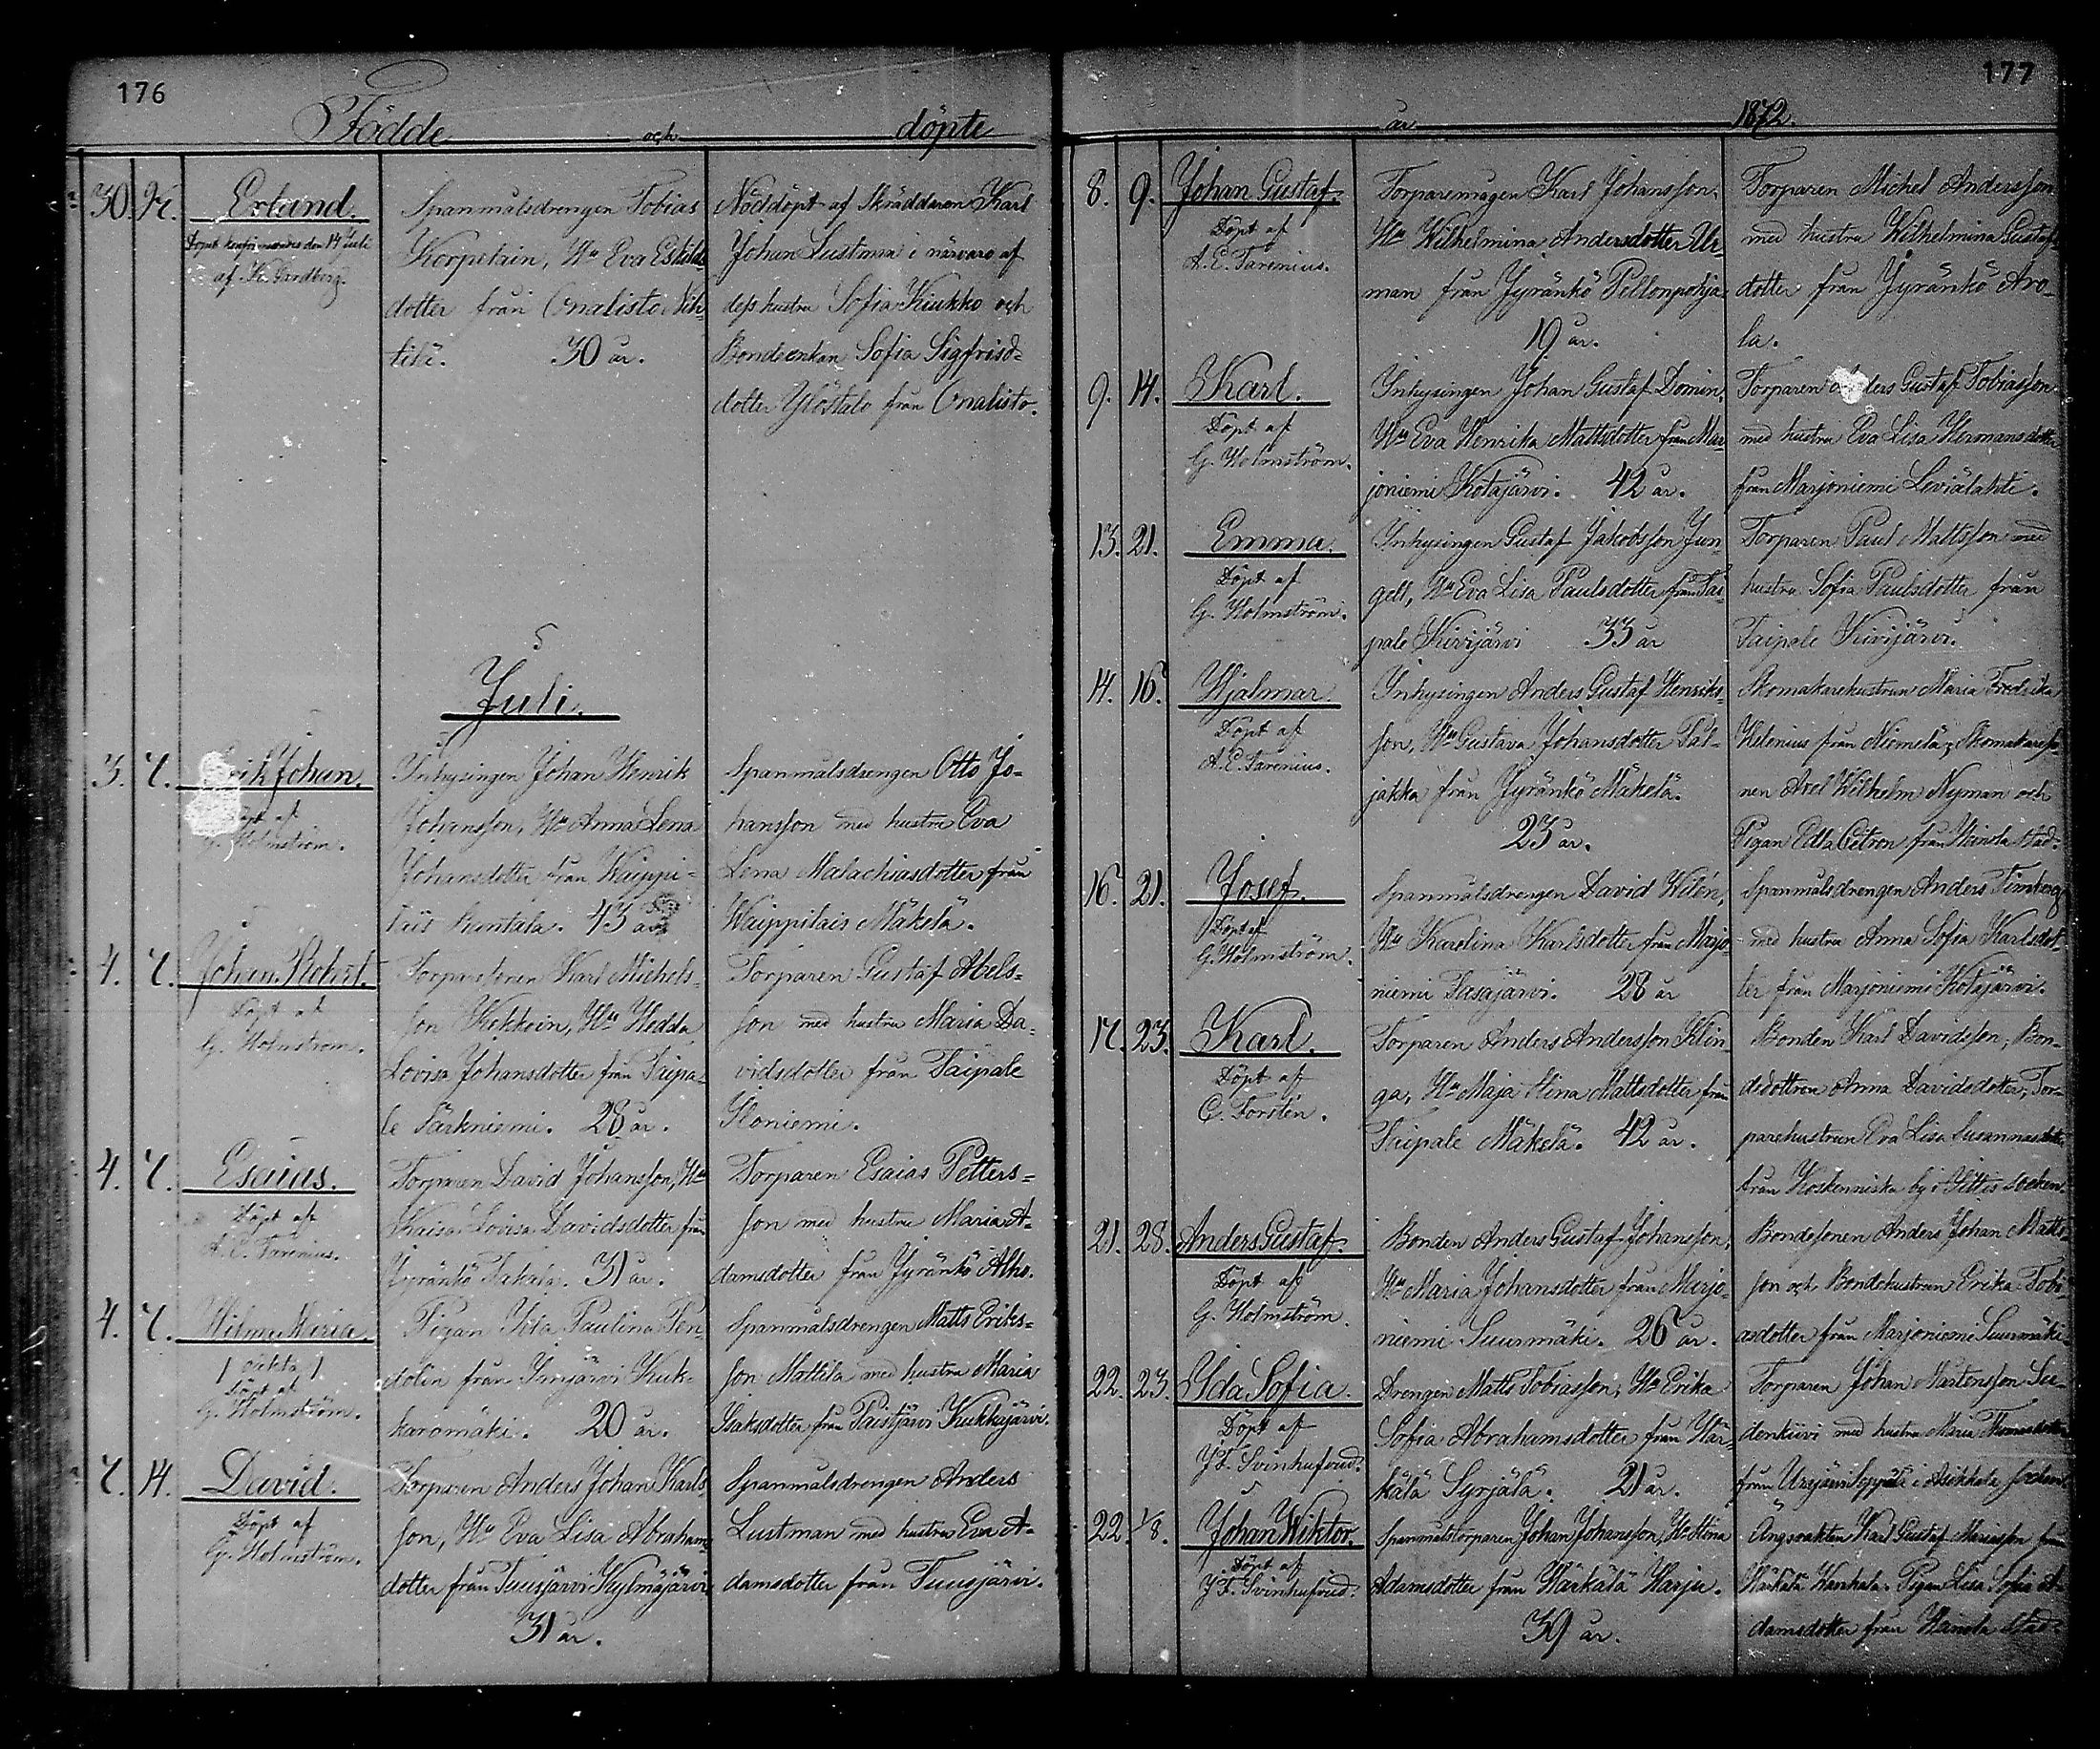 176
Födde och döpte
30. Erland.
Döpt konfirmerades den 14 Juli
af K. Gardberg.
Spanmålsdrengen Tobias
Korpelain, Hu Eva Eskils-
dotter från Onalisto Nik-
kilä. 30 år.
Nöddöpt af Skräddaren Karl
Johan Lustman i närvaro af
dess hustru Sofia Kiukko och
Bondeenkan Sofia Sigfrids-
dotter Ylöstalo från Onalisto.
Juli.
3. 7. Erik Johan.
Döpt af
G. Holmström.
Inhysingen Johan Henrik
Johansson, Hu Anna Lena
Johansdotter från Waippi-
lais Runtala. 43 år
Spanmålsdrengen Otto Jo-
hansson med hustru Eva
Lena Malachiasdotter från
Waippilais Mäkelä.
4. 7. Johan Robert.
Döpt af
G. Holmström.
Torparesonen Karl Michels-
son Kekkoin, Hu Hedda
Lovisa Johansdotter från Taipa-
le Särkniemi. 28 år.
Torparen Gustaf Abels-
son med hustru Maria Da-
vidsdotter från Taipale
Iloniemi.
4. 7. Esaias.
Döpt af
A. E. Tarenius.
Torparen David Johansson, Hu
Kaisa Lovisa Davidsdotter från
Jyränkö Takala. 31 år.
Torparen Esaias Petters-
son med hustru Maria A-
damsdotter från Jyränkö Alho.
4. 7. Hilma Maria.
/ oäkta /
Döpt af
G. Holmström.
Pigan Ida Paulina Fen-
dolin från Imjärvi Kuk-
karomäki. 20 år.
Spanmålsdrengen Matts Eriks-
son Mattila med hustru Maria
Isaksdotter från Paistjärvi Kukkajärvi.
7. 14. David.
Döpt af
G. Holmström.
Torparen Anders Johan Karls-
son, Hu Eva Lisa Abrahams-
dotter från Tuusjärvi Kylmäjärvi
31 år.
Spanmålsdrengen Anders
Lustman med hustru Eva A-
damsdotter från Tuusjärvi.
177
år 1872.
8. 9. Johan Gustaf.
Döpt af
A. E. Tarenius.
Torparemågen Karl Johansson,
Hu Wilhelmina Andersdotter Ur-
man från Jyränkö Pellonpohja
19 år.
Torparen Michel Andersson
med hustru Wilhelmina Gustafs-
dotter från Jyränkö Aro-
la.
9. 14. Karl.
Döpt af
G. Holmström.
Inhysingen Johan Gustaf Domin,
Hu Eva Henrika Mattsdotter från Mar-
joniemi Kotajärvi. 42 år.
Torparen Anders Gustaf Tobiasson
med hustru Eva Lisa Hermansdotter
från Marjoniemi Leviälahti.
13. 21. Emma.
Döpt af
G. Holmström.
Inhysingen Gustaf Jakobsson Jun-
gell, Hu Eva Lisa Paulsdotter från Tai-
pale Kivijärvi 33 år
Torparen Paul Mattsson med
hustru Sofia Paulsdotter från
Taipale Kivijärvi.
14. 16. Hjalmar.
Döpt af
A. E. Tarenius.
Inhysingen Anders Gustaf Henriks-
son, Hu Gustava Johansdotter Päl-
jakka från Jyränkö Mäkelä.
23 år.
Skomakarehustrun Maria Fredrika
Helenius från Niemelä; Skomakareso-
nen Axel Wilhelm Nyman och
Pigan Edla Citron från Heinola stad.
16. 21. Josef.
Döpt af
G. Holmström.
Spanmålsdrengen David Wilén,
Hu Karolina Karlsdotter från Marjo-
niemi Tasajärvi. 28 år
Spanmålsdrengen Anders Timberg
med hustru Anna Sofia Karlsdot-
ter från Marjoniemi Kotajärvi.
17. 23. Karl.
Döpt af
C. Forstén.
Torparen Anders Andersson Klin-
ga, Hu Maja Stina Mattsdotter från
Taipale Mäkelä. 42 år.
Bonden Karl Davidsson, Bon-
dedottren Anna Davidsdotter, Tor-
parehustrun Eva Lisa Susannasdotter
från Koskenniska by i Iittis socken.
21. 28. Anders Gustaf.
Döpt af
G. Holmström.
Bonden Anders Gustaf Johansson,
Hu Maria Johansdotter från Marjo-
niemi Suurmäki. 26 år.
Bondesonen Anders Johan Matts-
son och Bondehustrun Erika Tobi-
asdotter från Marjoniemi Suurmäki.
22. 23. Ida Sofia.
Döpt af
J. F. Svinhufvud.
Drengen Matts Tobiasson, Hu Erika
Sofia Abrahamsdotter från Här-
kälä Syrjälä. 21 år.
Torparen Johan Mårtensson
med hustru Maria Thomasdotter
från Urajärvi Seppälä i Asikkala socken.
22. 1/8. Johan Wiktor.
Döpt af
J. F. Svinhufvud.
Spanmålstorparen Johan Johansson, Hu Stina
Adamsdotter från Härkälä Harju.
39 år.
Ängsvakten Karl Gustaf Mariasson från
Härkälä Pigan Lisa Sofia A-
damsdotter från Heinola stad.